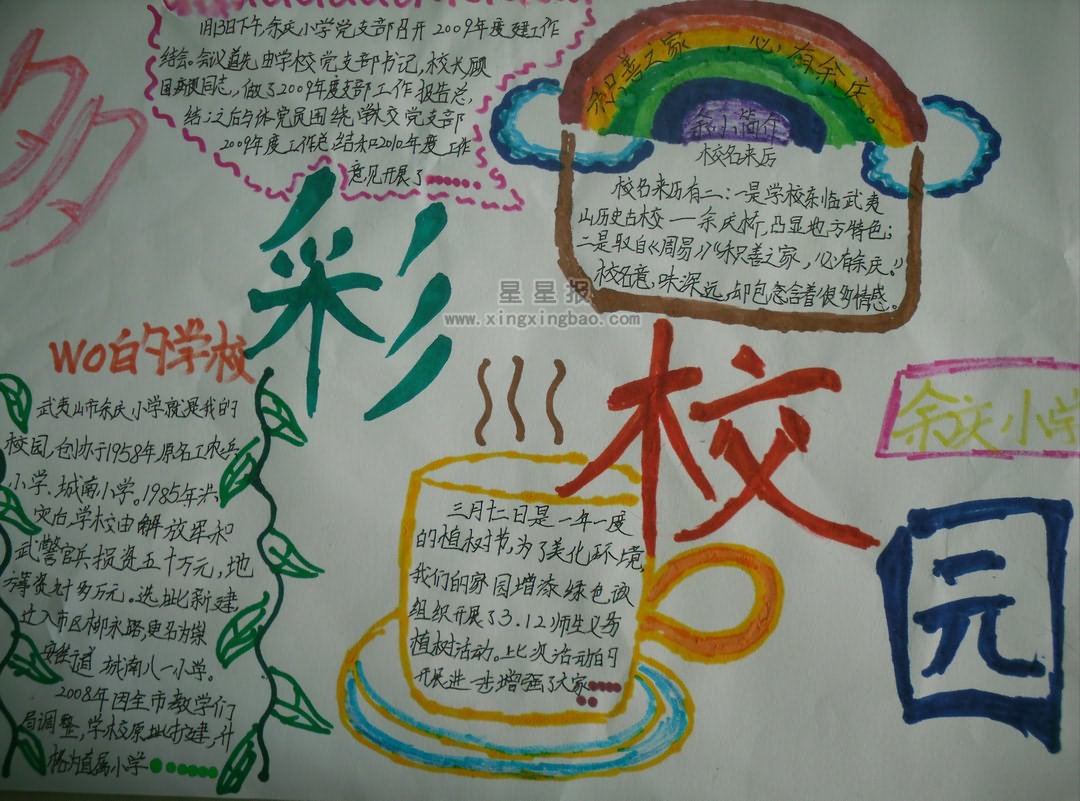 多彩校园
1月13日下午,余庆小学党支部召开2009年度建工作
结会。会议首先由学校党支部书记,校长顾
同志,做了2009年度支部工作报告总,
结;之后与体党员围绕学校党支部
2009年度工作总结和2010年度工作
意见开展了
积善之家,必有余庆。
余小简介
校名来历
校名来历有二:一是学校东临武夷
山历史古桥——余庆桥,凸显地方特色;
二是取自《周易》“积善之家,必有余庆。”
校名意,味深远,却包含着很多情感。
星星报
www.xingxingbao.com
wo的学校
武夷山市余庆小学就是我的
校园,创办于1958年原名工农兵
小学、城南小学。1985年洪
灾后,学校由解放军和
武警官兵捐资五十万元,地
方筹资九十多万元。选址新建
迁入市区柳永路,更名为崇
安街道城南八一小学。
2008年因全市教学们
局调整,学校原址扩建,升
格为直属小学
三月十二日是一年一度
的植树节,为了美化环境,
我们的家园增添绿色该
组织开展了3.12师生义务
植树活动。上比次活动的
开展进一步增强了大家
余庆小学